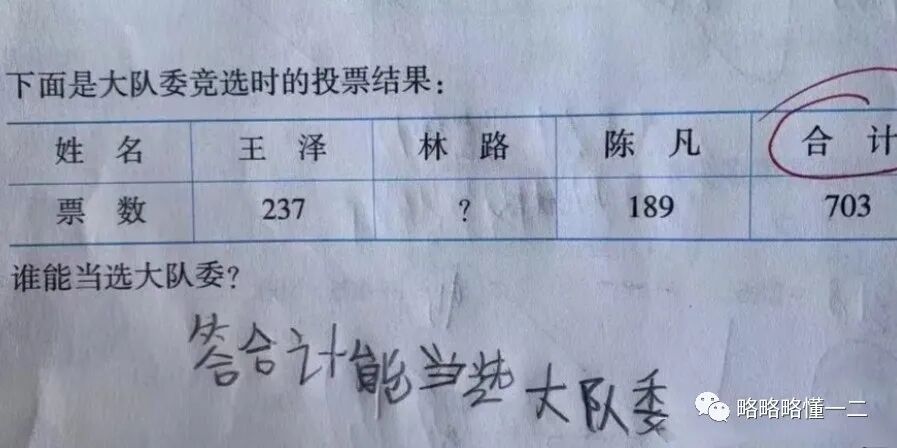 下面是大队委竞选时的投票结果：
姓 名 王 泽 林 路 陈 凡 合 计
票 数 237 ? 189 703
谁能当选大队委?
答合计能当选大队委
略略略懂一二